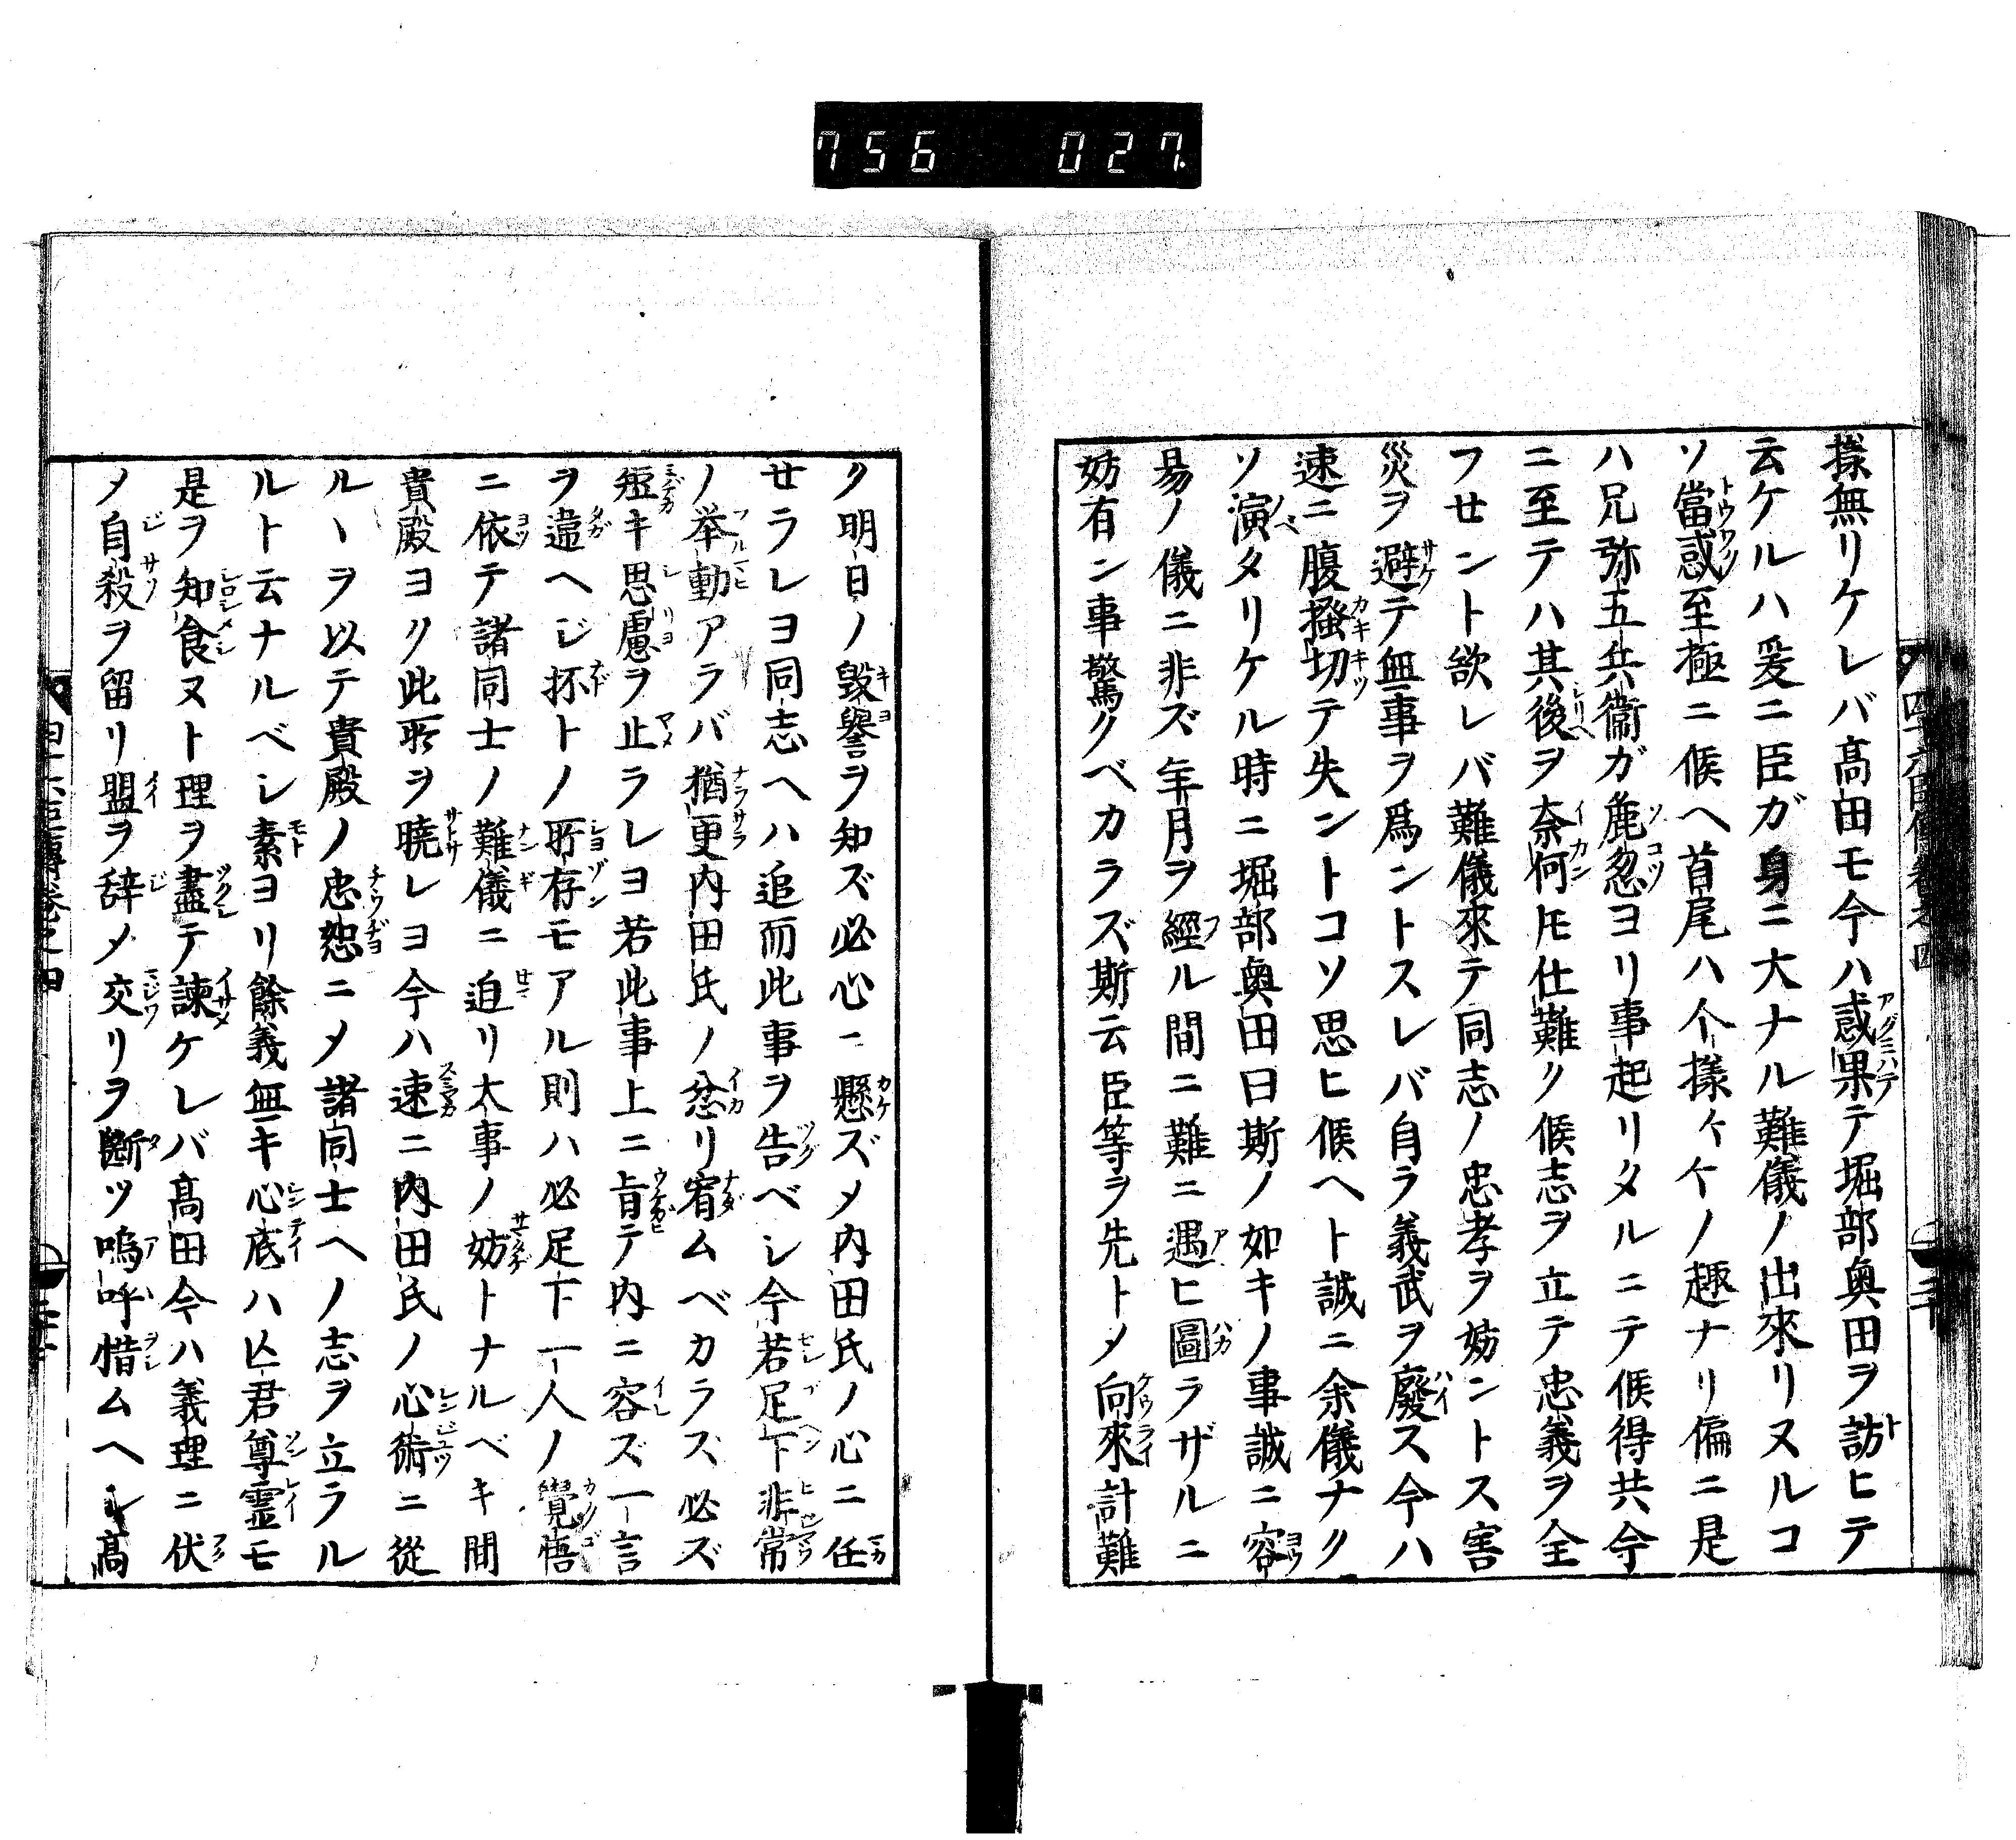 756 027.
様無リケレバ髙田モ今ハ惑果テ堀部奥田ヲ訪ヒテ
云ケルハ爰ニ臣ガ身ニ大ナル難儀ノ出來リヌルコ
ソ當惑至極ニ候ヘ首尾ハ个様々々ノ趣ナリ偏ニ是
ハ兄弥五兵衞ガ麁忽ヨリ事起リタルニテ候得共今
ニ至テハ其後ヲ奈何𪜈仕難ク候志ヲ立テ忠義ヲ全
フせント欲レバ難儀來テ同志ノ忠孝ヲ妨ントス害
災ヲ避テ無事ヲ爲ントスレバ自ラ義武ヲ廢ス今ハ
速ニ腹搔切テ失ントコソ思ヒ候ヘト誠ニ余儀ナク
ソ演タリケル時ニ堀部奥田曰斯ノ如キノ事誠ニ容
昜ノ儀ニ非ズ年月ヲ經ル間ニ難ニ遇ヒ圖ラザルニ
妨有ン事驚クベカラズ斯云臣等ヲ先トメ向來計難
ク明日ノ毀譽ヲ知ズ必心ニ懸ズメ内田氏ノ心ニ任
せラレヨ同志ヘハ追而此事ヲ告ベシ今若足下非常
ノ挙動アラバ猶更内田氏ノ忿リ宥ムベカラス必ズ
短キ思慮ヲ止ラレヨ若此事上ニ肯テ内ニ容ズ一言
ヲ違ヘジ抔トノ所存モアル則ハ必足下一人ノ覺悟
ニ依テ諸同士ノ難儀ニ迫リ大事ノ妨トナルベキ間
貴殿ヨク此所ヲ曉レヨ今ハ速ニ内田氏ノ心術ニ從
ルヽヲ以テ貴殿ノ忠恕ニメ諸同士ヘノ志ヲ立ラル
ルト云ナルベシ素ヨリ餘義無キ心底ハ亡君尊霊モ
是ヲ知食ヌト理ヲ盡テ諫ケレバ髙田今ハ義理ニ伏
メ自殺ヲ留リ盟ヲ辞メ交リヲ断ツ嗚呼惜ムヘシ髙